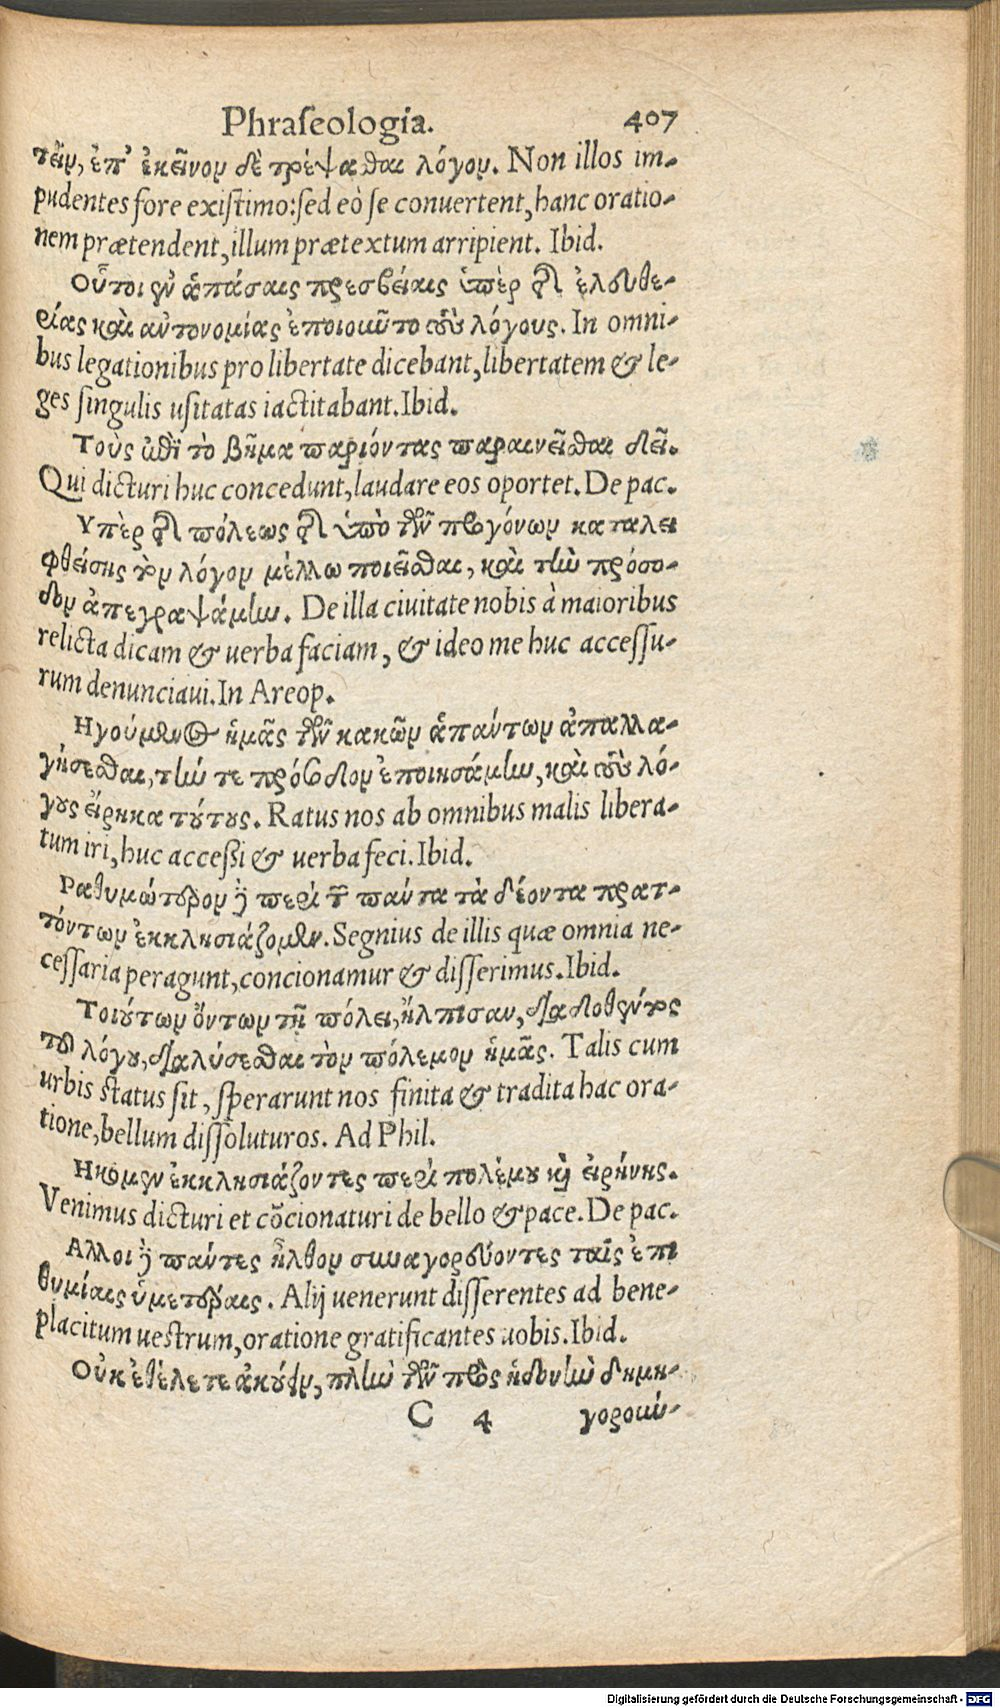 Phraseologia. 407
τεῖν, ἐπ' ἐκεῖνον δὲ τρέψασθαι λόγον. Non illos im-
pudentes fore existimo: sed eò se conuertent, hanc oratio-
nem prætendent, illum prætextum arripient. Ibid.
Οὗτοι ἐν ἁπάσαις πρεσβείαις ὑπὲρ τῆς ἐλευθε-
ρίας καὶ αὐτονομίας ἐποιοῦντο τοὺς λόγους. In omni-
bus legationibus pro libertate dicebant, libertatem & le-
ges singulis usitatas iactitabant. Ibid.
Τοὺς ἐπὶ τὸ βῆμα παριόντας παραινεῖσθαι δεῖ.
Qui dicturi huc concedunt, laudare eos oportet. De pac.
Υπὲρ τῆς πόλεως τῆς ὑπὸ τῶν προγόνων καταλει
φθείσης τὸν λόγον μέλλω ποιεῖσθαι, καὶ τὴν πρόσο-
δον ἀπεγραψάμην. De illa ciuitate nobis à maioribus
relicta dicam & uerba faciam, & ideo me huc accessu-
rum denunciaui. In Areop.
Ηγούμενος ἡμᾶς τῶν κακῶν ἁπάντων ἀπαλλα-
γήσεσθαι, τήν τε πρόσοδον ἐποιησάμην, καὶ τοὺς λό-
γους εἴρηκα τούτους. Ratus nos ab omnibus malis libera-
tum iri, huc accessi & uerba feci. Ibid.
Ραθυμότερον ἢ περὶ τῶν πάντα τὰ δέοντα πρατ-
τόντων ἐκκλησιάζομεν. Segnius de illis quæ omnia ne-
cessaria peragunt, concionamur & disserimus. Ibid.
Τοιούτων ὄντων τῇ πόλει, ἤλπισαν, διαδοθέντος
τοῦ λόγου, διαλύσεσθαι τὸν πόλεμον ἡμᾶς. Talis cum
urbis status sit, sperarunt nos finita & tradita hac ora-
tione, bellum dissoluturos. Ad Phil.
Ηκομεν ἐκκλησιάζοντες περὶ πολέμου καὶ εἰρήνης.
Venimus dicturi et cōcionaturi de bello & pace. De pac.
Αλλοι ἢ πάντες ἦλθον συναγορεύοντες ταῖς ἐπι
θυμίαις ὑμετέραις. Alij uenerunt disserentes ad bene-
placitum uestrum, oratione gratificantes uobis. Ibid.
Οὐκ ἐθέλετε ἀκούειν, πλὴν τῶν πρὸς ἡδονὴν δημη-
C 4 γορούν-
Digitalisierung gefördert durch die Deutsche Forschungsgemeinschaft - DFG